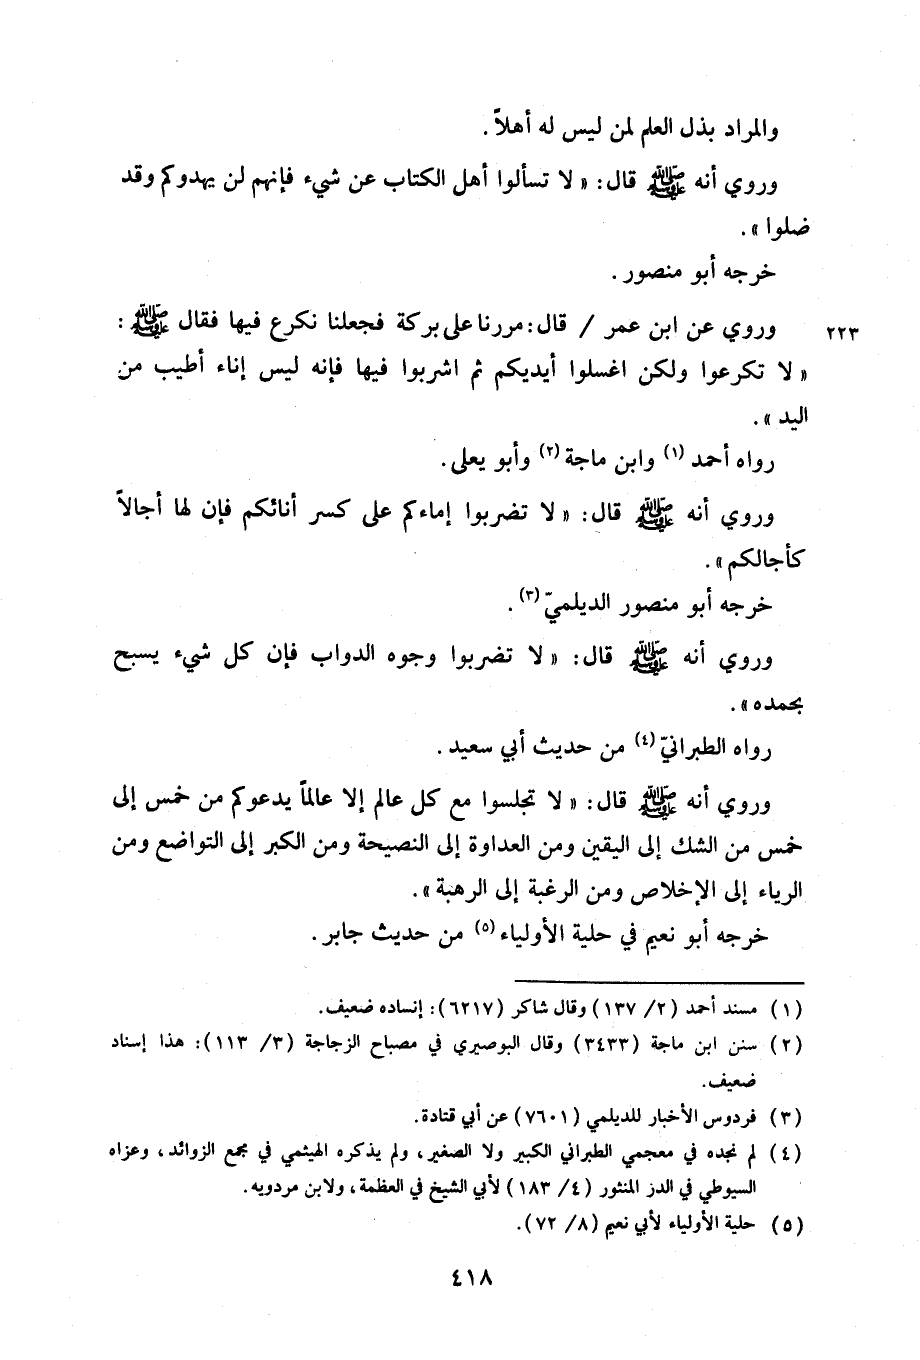 والمراد بذل العلم لمن ليس له أهلاً.
وروي أنه ﷺ قال: « لا تسألوا أهل الكتاب عن شيء فإنهم لن يهدوكم وقد
ضلوا ».
خرجه أبو منصور.
٢٢٣ وروي عن ابن عمر / قال: مررنا على بركة فجعلنا نكرع فيها فقال ﷺ :
« لا تكرعوا ولكن اغسلوا أيديكم ثم اشربوا فيها فإنه ليس إناء أطيب من
اليد ».
رواه أحمد (١) وابن ماجة (٢) وأبو يعلى.
وروي أنه ﷺ قال: « لا تضربوا إماءكم على كسر أنائكم فإن لها أجالاً
كأجالكم ».
خرجه أبو منصور الديلميّ (٣).
وروي أنه ﷺ قال: « لا تضربوا وجوه الدواب فإن كل شيء يسبح
بحمده ».
رواه الطبرانيّ (٤) من حديث أبي سعيد.
وروي أنه ﷺ قال: « لا تجلسوا مع كل عالم إلا عالماً يدعوكم من خمس إلى
خمس من الشك إلى اليقين ومن العداوة إلى النصيحة ومن الكبر إلى التواضع ومن
الرياء إلى الإخلاص ومن الرغبة إلى الرهبة ».
خرجه أبو نعيم في حلية الأولياء (٥) من حديث جابر.
(١) مسند أحمد (٢/ ١٣٧) وقال شاكر (٦٢١٧): إنساده ضعيف.
(٢) سنن ابن ماجة (٣٤٣٣) وقال البوصيري في مصباح الزجاجة (٣/ ١١٣): هذا إسناد
ضعيف.
(٣) فردوس الأخبار للديلمي (٧٦٠١) عن أبي قتادة.
(٤) لم نجده في معجمي الطبراني الكبير ولا الصغير، ولم يذكره الهيثمي في مجمع الزوائد، وعزاه
السيوطي في الدز المنثور (٤/ ١٨٣) لأبي الشيخ في العظمة، ولابن مردويه.
(٥) حلية الأولياء لأبي نعيم (٨/ ٧٢).
٤١٨